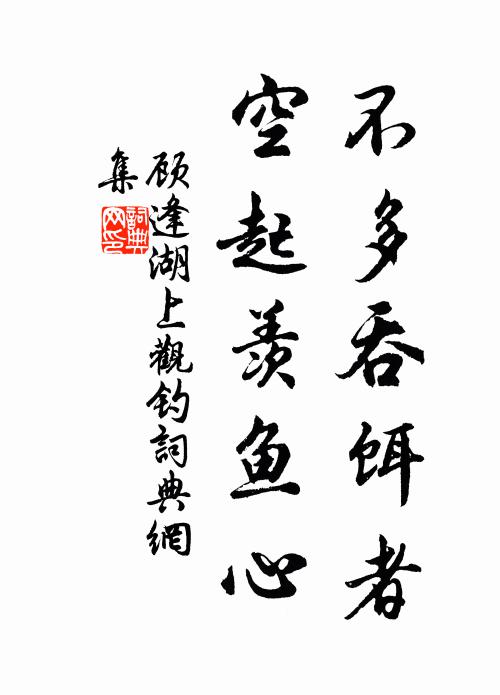 不多吞饵者
空起羡鱼心
顾逢湖上觀钓詞典網
集
詞典
网印